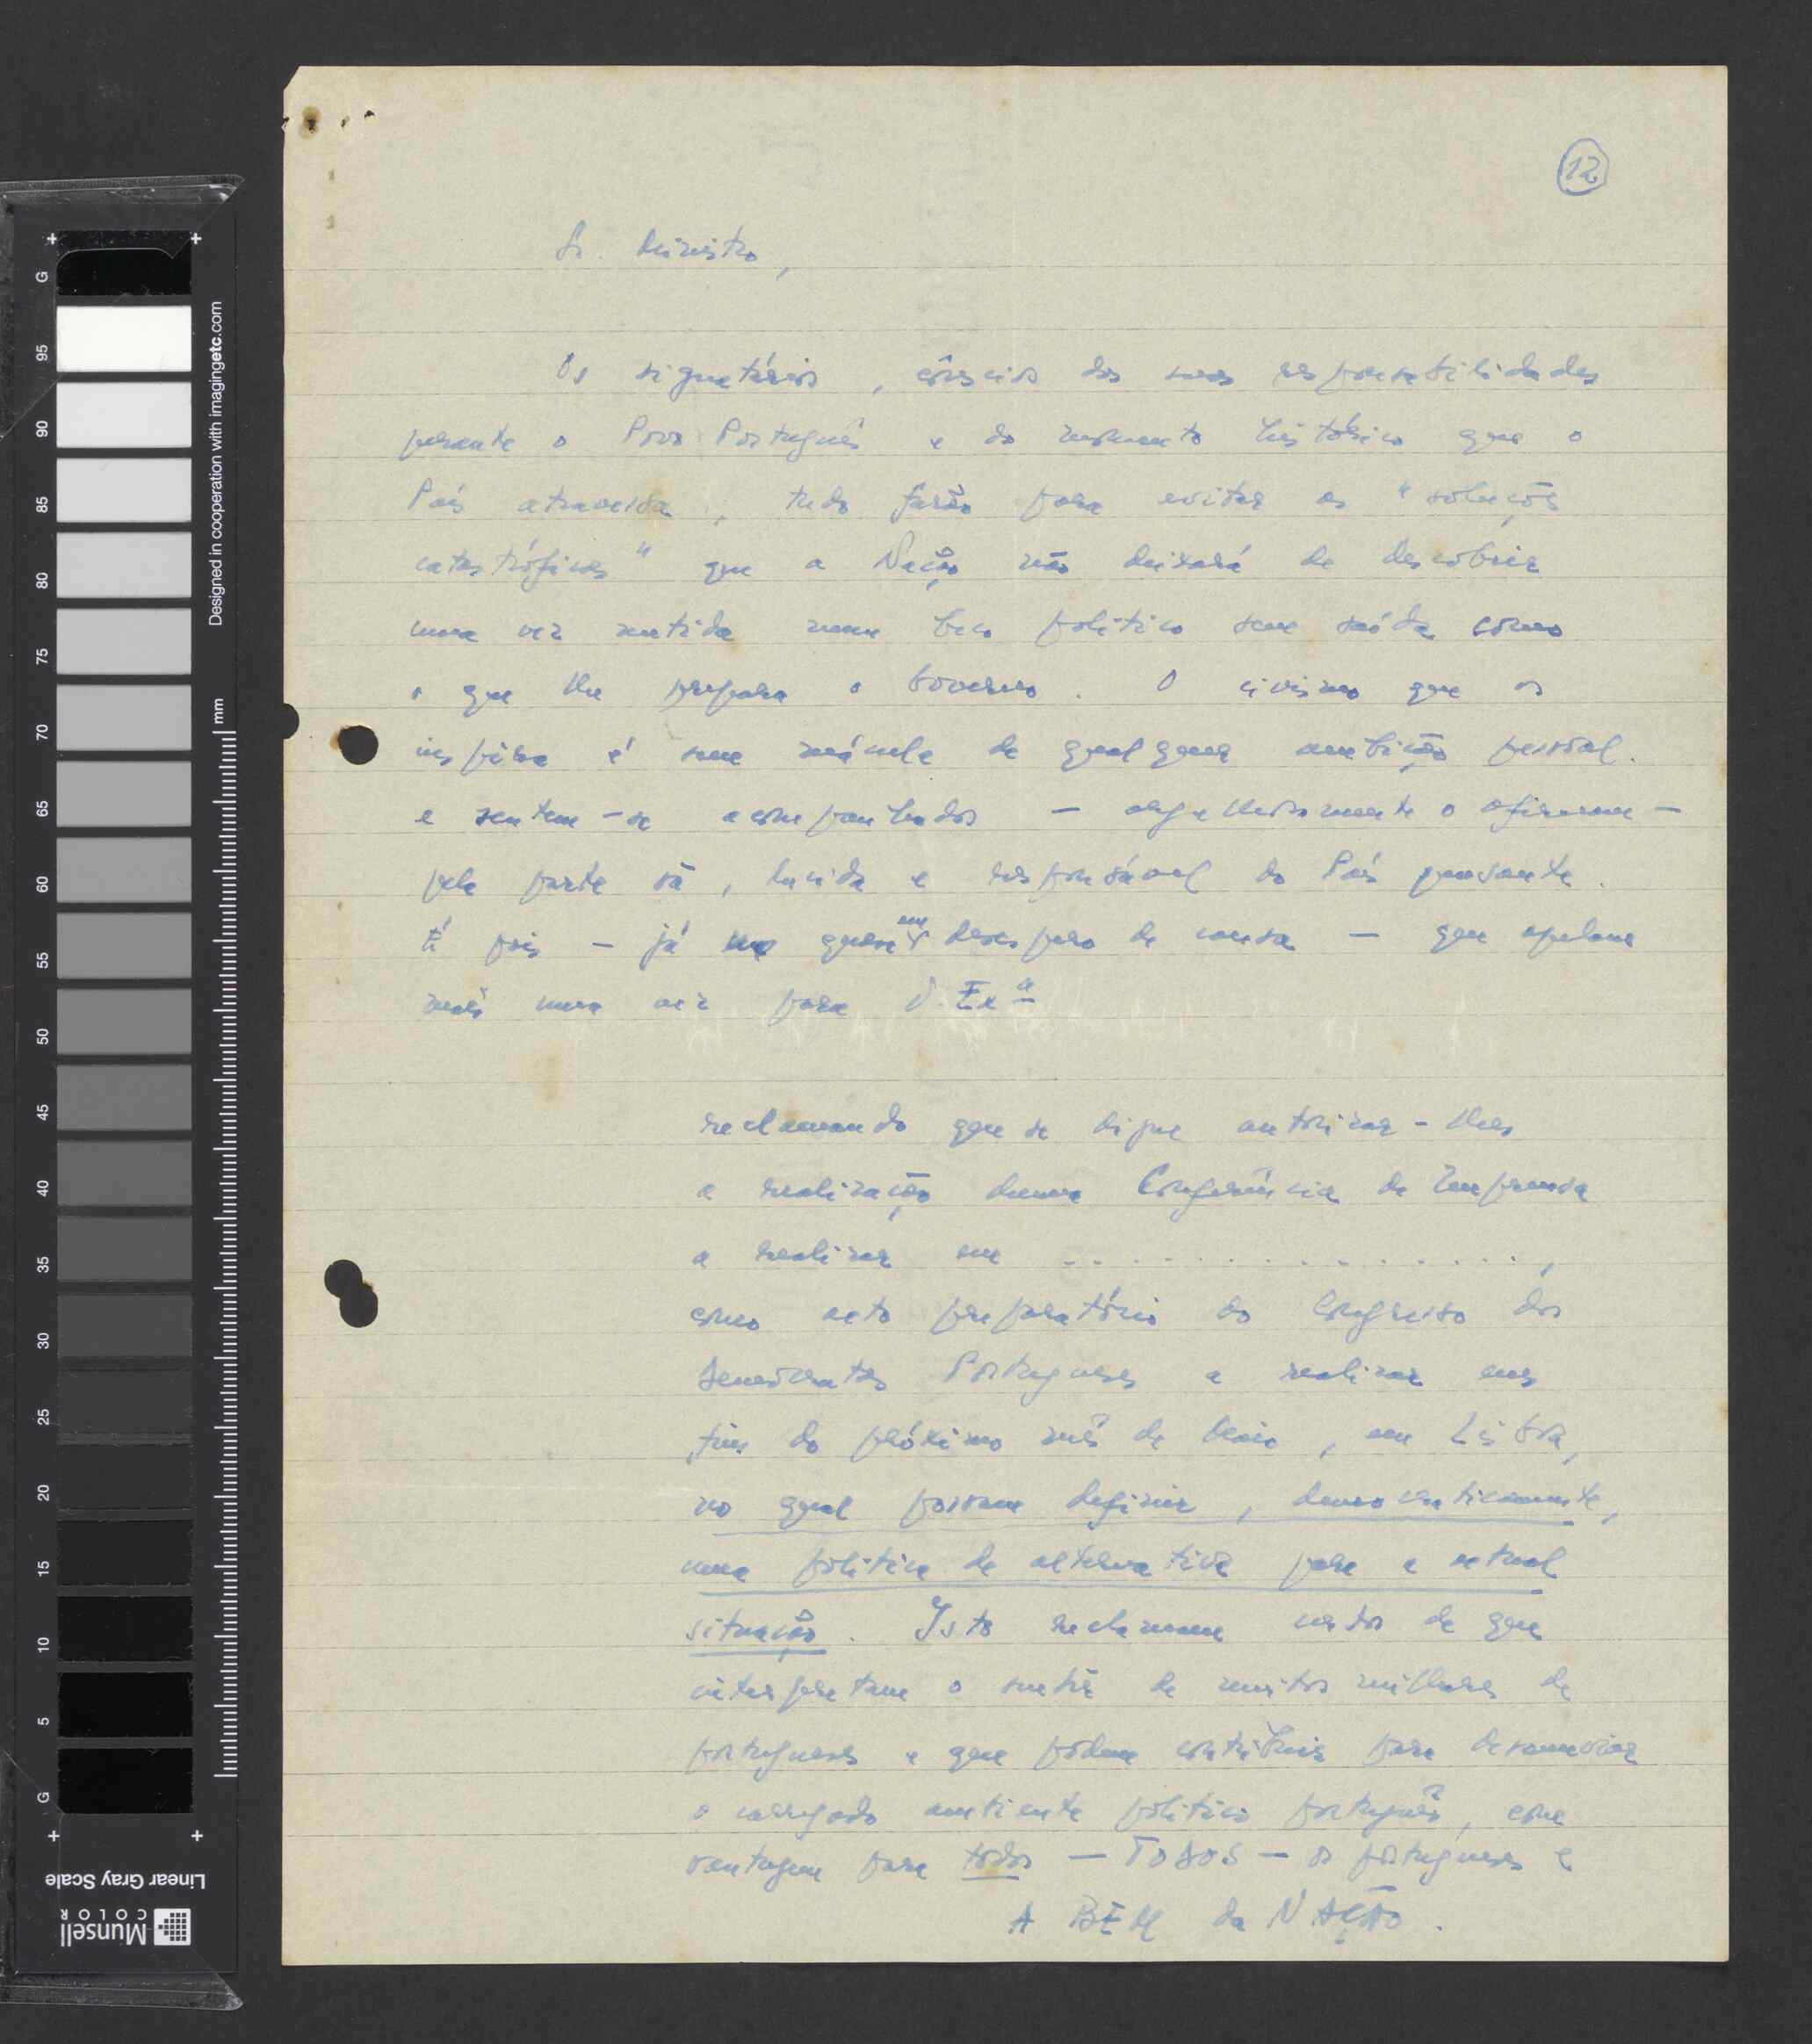 12
Sr. Ministro,
Os signatários, cônscios das suas responsabilidades
perante o Povo Português e do momento histórico que o
País atravessa, tudo farão para evitar as "soluções
catastróficas" que a Nação não deixará de descobrir
uma vez metida num beco político sem saída como
o que lhe prepara o Governo. O civismo que os
inspira é sem mácula de qualquer ambição pessoal.
e sentem-se acompanhados — orgulhosamente o afirmam —
pela parte sã, lucida e responsável do País pensante.
É pois — já quase em desespero de causa — que apelam
mais uma vez para V. Exª
reclamando que se digne autorizar-lhes
a realização duma Conferência de Imprensa
a realizar em . . . . . . . . . . . . . . . . ,
como acto preparatório do Congresso dos
Democratas Portugueses a realizar em
fins do próximo mês de Maio, em Lisboa,
no qual possam definir, democraticamente,
uma política de alternativa para a actual
situação. Isto reclamam certos de que
interpretam o sentir de muitos milhares de
portugueses e que podem contribuir para desanuviar
o carregado ambiente político português, com
vantagem para todos — TODOS — os portugueses e
A BEM da NAÇÃO.
G
95
90
85
80
75
70
65
60
55
50
45
40
35
30
25
20
15
10
5
G
mm
Designed in cooperation with imagingetc.com
Munsell
COLOR
Linear Gray Scale